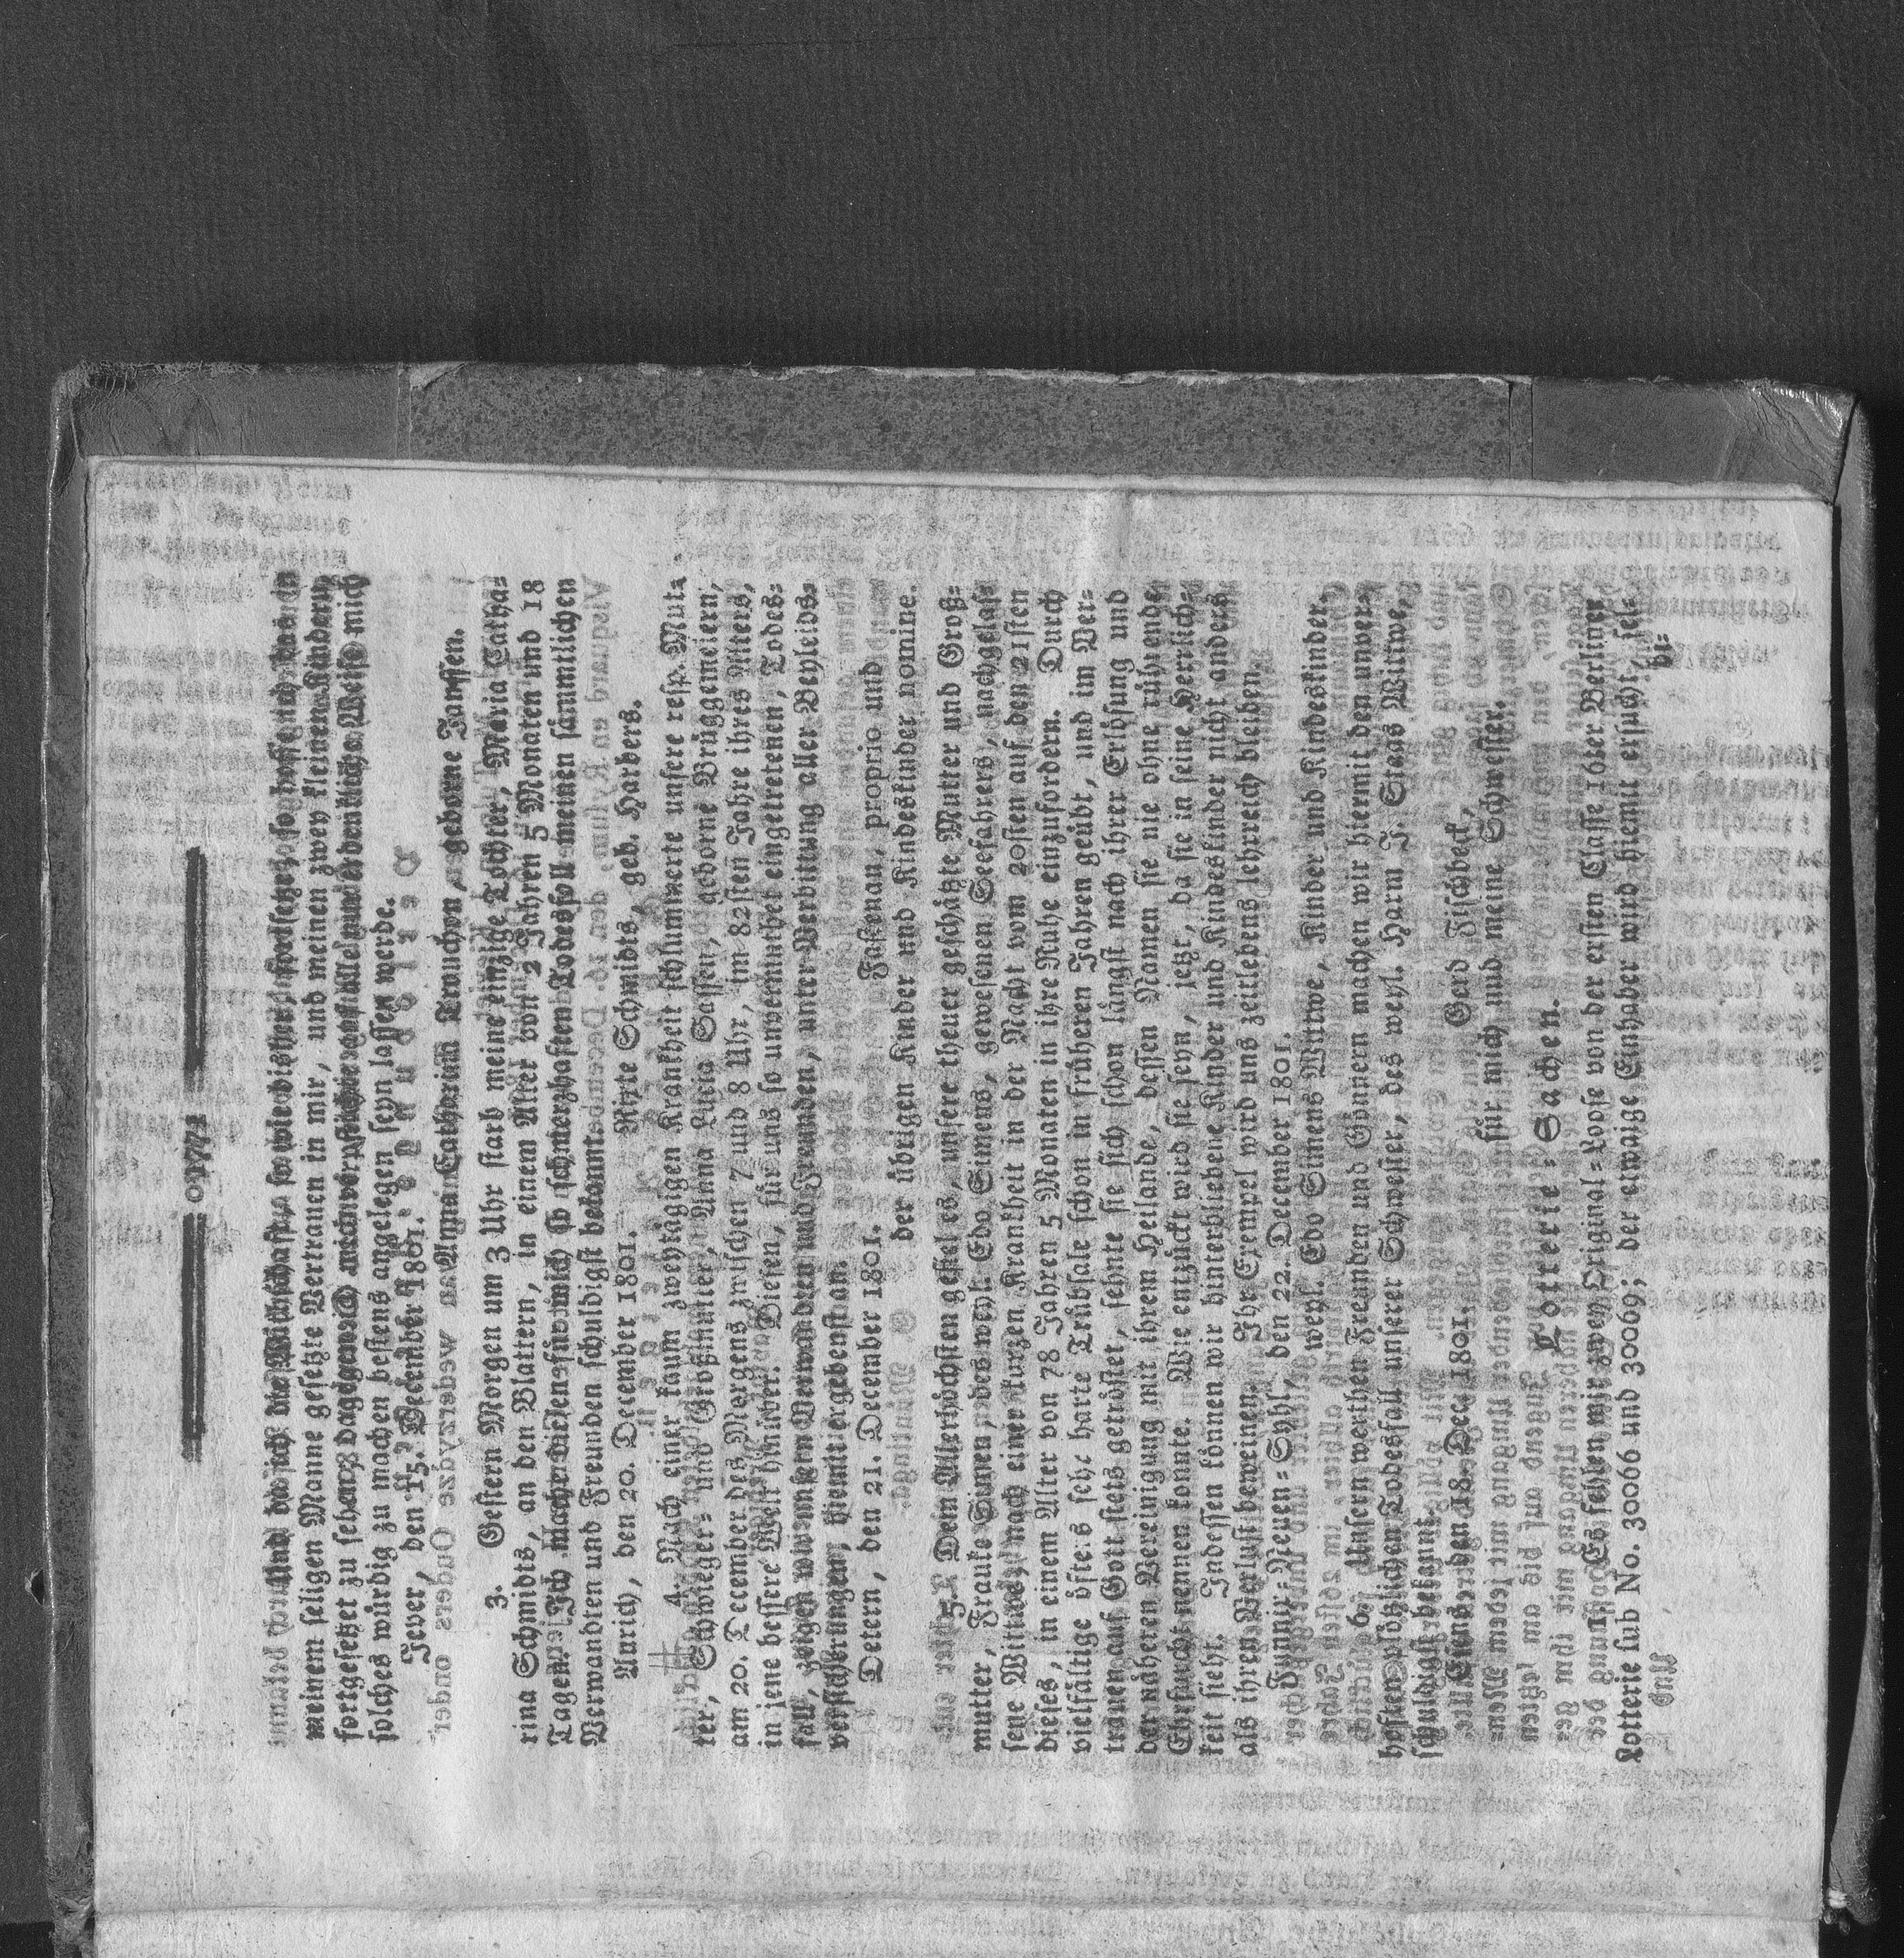 Und da ich die Wirthschaft so wie bisher fortsetze, so hoffe ich das
meinem seligen Manne gesetzte Vertrauen in mir, und meinen zwey kleinen Kindern
fortgesetzt zu sehen; dagegen ich mich verpflichte, auf alle nur denkliche Weise mich
solches würdig zu machen bestens angelegen seyn lassen werde.
Jever, den 15. December 1801.
Anna Catharina geborne Janssen.
3. Gestern Morgen um 3 Uhr starb meine einzige Tochter, Maria Catha-
rina Schmidts, an den Blattern, in einem Alter von 2 Jahren 5 Monaten und 18
Tagen. Ich mache diesen für mich so schmerzhaften Todesfall meinen sämmtlichen
Verwandten und Freunden schuldigst bekannt.
Aurich, den 20. December 1801. Rixte Schmidts, geb. Harbers.
4. Nach einer kaum zweytägigen Krankheit schlummerte unsere resp. Mut-
ter, Schwieger- und Großmutter, Anna Lucia Sassen, geborne Brüggemeiern,
am 20. December des Morgens zwischen 7 und 8 Uhr, im 82sten Jahre ihres Alters,
in jene bessere Welt hinüber. Diesen, für uns so unvermuthet eingetretenen, Todes-
fall, zeigen wir unsern Verwandten und Freunden, unter Verbittung aller Beyleids-
versicherungen, hiemit ergebenst an.
Detern, den 21. December 1801. proprio und
der übrigen Kinder und Kindeskinder nomine.
5. Dem Allerhöchsten gefiel es, unsere theuer geschätzte Mutter und Groß-
mutter, Frauke Simen, des weyl. Edo Simens, gewesenen Seefahrers, nachgelas-
sene Wittwe, nach einer kurzen Krankheit in der Nacht vom 20sten auf den 21sten
dieses, in einem Alter von 78 Jahren 5 Monaten in ihre Ruhe einzufordern. Durch
vielfältige öfters sehr harte Trübsale schon in früheren Jahren geübt, und im Ver-
trauen auf Gott stets getröstet, sehnte sie sich schon längst nach ihrer Erlösung und
der näheren Vereinigung mit ihrem Heilande, dessen Namen sie nie ohne rührende
Ehrfurcht nennen konnte. Wie entzückt wird sie seyn, jetzt, da sie in seine Herrlich-
keit sieht. Indessen können wir hinterbliebene Kinder und Kindeskinder nicht anders
als ihren Verlust beweinen. Ihr Exempel wird uns zeitlebens lehrreich bleiben.
Funnix-Neuen-Syhl, den 22. December 1801.
weyl. Edo Simens Wittwe, Kinder und Kindeskinder.
6. Unsern werthen Freunden und Gönnern machen wir hiermit den unver-
hoften plötzlichen Todesfall unserer Schwester, des weyl. Harm J. Staas Wittwe,
schuldigst bekannt.
Emden, den 18. Dec. 1801. Gerd Fischbeck,
für mich und meine Schwester.
Lotterie-Sachen.
Es fehlen mir zwey Original-Loose von der ersten Classe 16er Berliner
Lotterie sub No. 30066 und 30069; der etwaige Einhaber wird hiemit ersucht, sel-
bi-